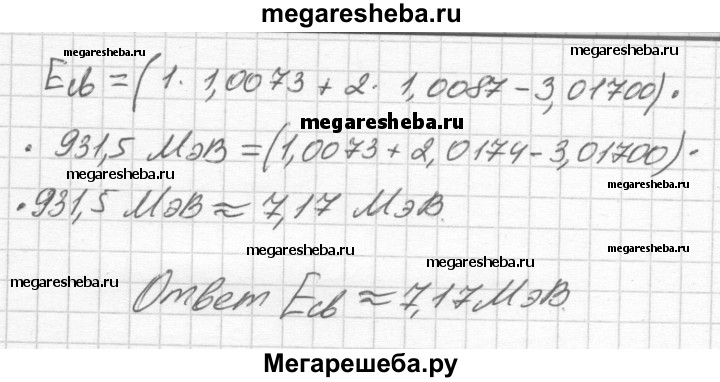 megaresheba.ru
megaresheba.ru megaresheba.ru
Eсв = (1 · 1,0073 + 2 · 1,0087 − 3,01700) ·
megaresheba.ru
· 931,5 МэВ = (1,0073 + 2,0174 − 3,01700) ·
megaresheba.ru megaresheba.ru
· 931,5 МэВ ≈ 7,17 МэВ.
megaresheba.ru megaresheba.ru
megaresheba.ru megaresheba.ru
Ответ Eсв ≈ 7,17 МэВ.
Мегарешеба.ру